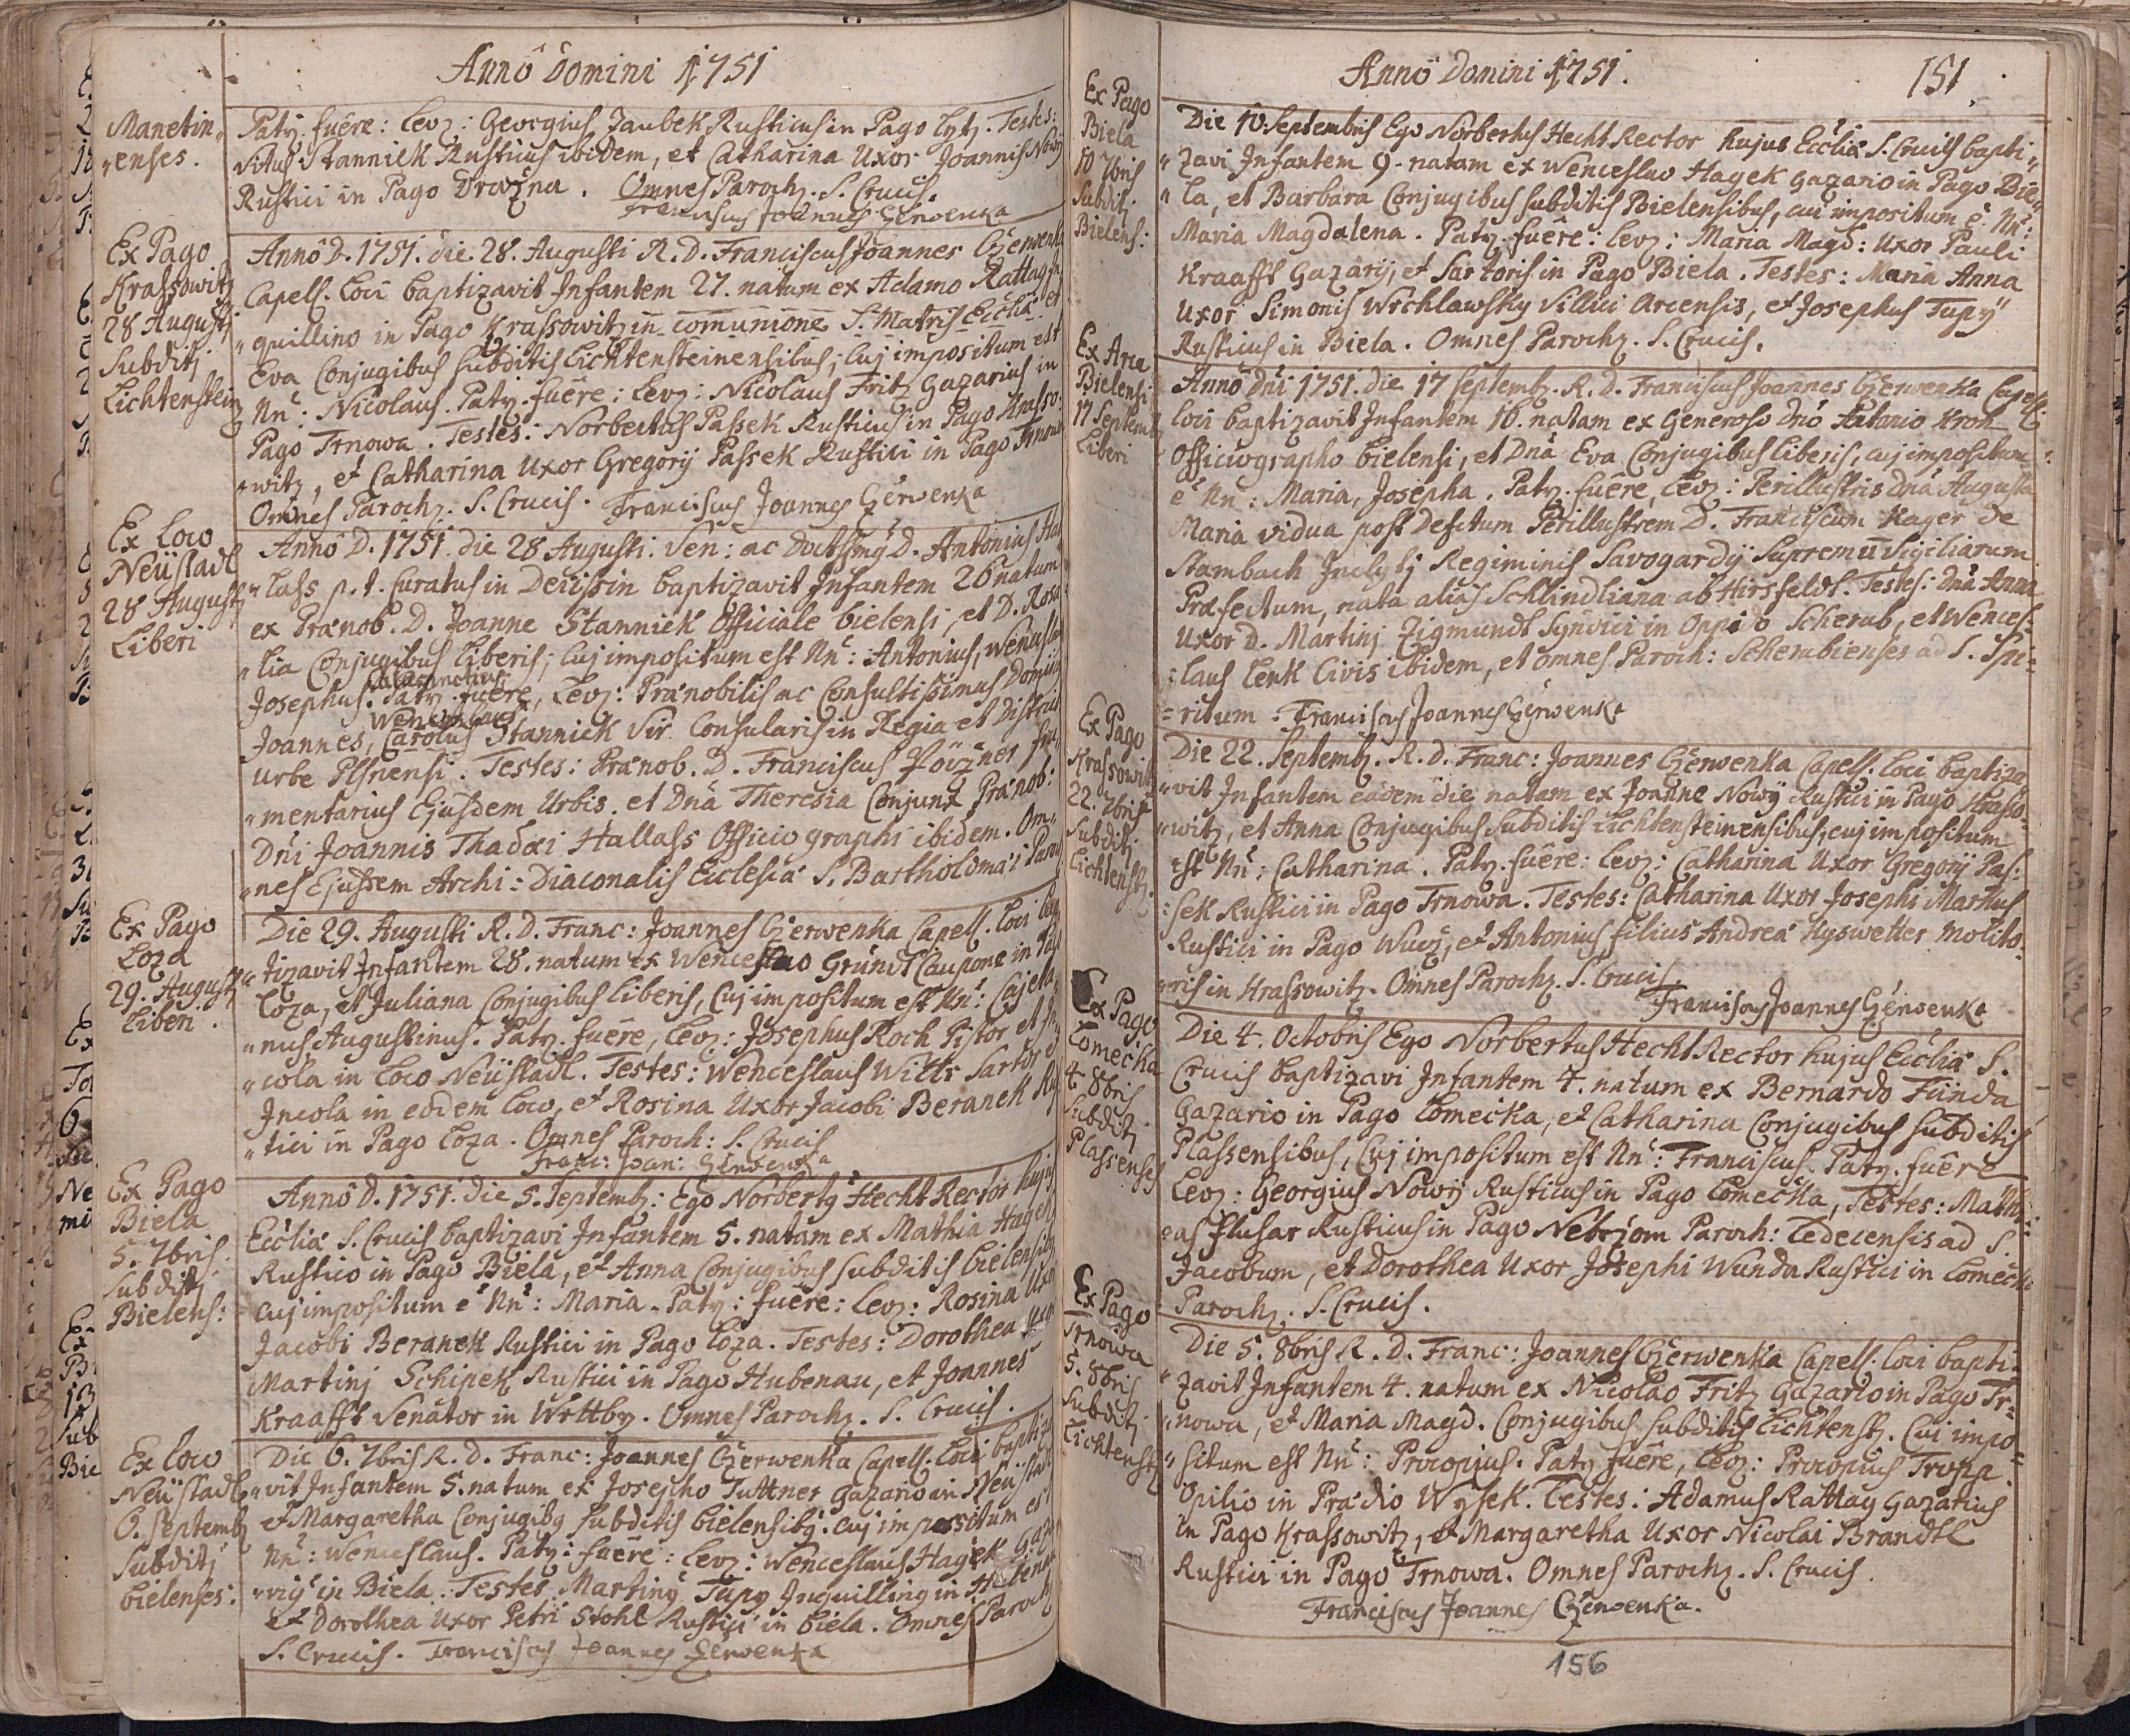 Anno Domini 1751
Manetin„
„enses.
Patr. fuêre: Lev: Georgius Jaubek Rusticus in Pago Lytz. Testes:
Vitus Stanniek Rusticus ibidem, et Catharina Uxor Joannis Nowy
Rustici in Pago Drazna. Omnes Paroch. S. Crucis.
Franciscus Joannes Czerwenka
Ex Pago
Krassowitz
28 Augusti
Subditj
Lichtenstein
Anno D. 1751. die 28. Augusti R. D. Franciscus Joannes Czerwenka
Capell. Loci baptizavit Infantem 27. natum ex Adamo Rattay In
„quillino in Pago Krassowitz in comunione S. Matris Eccliæ et
Eva Conjugibus subditis Lichtensteinensibus; Cuj impositum est
Nñ: Nicolaus. Patr. fuêre: Lev: Nicolaus Fritz Gazarius in
Pago Trnowa. Testes: Norbertus Passek Rusticus in Pago Krasso„
„witz, et Catharina Uxor Gregorij Passek Rustici in Pago Trnowa
Omnes Paroch. S. Crucis. Franciscus Joannes Czerwenka
Ex Loco
Neüstadl
28 Augusti
Liberi
Anno D. 1751. die 28 Augusti. Ven: ac Doctissimg D. Antonius Hal
„lass p. t. Curatus in Derissin baptizavit Infantem 26 natum
ex Prænob. D. Joanne Stanniek Officiale bielensi, et D. Rosa
„lia Conjugibus Liberis; Cuj impositum est Nñ: Antonius, Wenceslaus
Josephus. Patr. fuêre, Lev: Prænobilis ac Consultissimus Dominus
Wenceslaus
Joannes, Carolus Stanniek Vir Consularis in Regia et District
Urbe Plsnensi. Testes: Prænob. D. Franciscus Pöyzner fru„
„mentarius Ejusdem Urbis. et Dnã Theresia Conjunx Prænob:
Dñi Joannis Thadæi Hallass Officiographi ibidem. Om„
„nes Ejusdem Archi: Diaconalis Ecclesiæ S. Bartholomæi Paroch
Ex Pago
Loza
29. Augusti
Liberi.
Die 29. Augusti R. D. Franc: Joannes Czerwenka Capell. Loci bap
„tizavit Infantem 28. natum ex Wenceslao Gründl Caupone in Pago
Loza, et Juliana Conjugibus Liberis, Cuj impositum est Nñ: Cajeta„
„nus Augustinus. Patr. fuêre, Lev: Josephus Koch Pistor et In
„cola in Loco Neüstadl. Testes: Wenceslaus Witts Sartor et
Incola in eodem Loco, et Rosina Uxor Jacobi Beranek Rus
„tici in Pago Loza. Omnes Paroch: S. Crucis
Franc: Joan: Czerwenka
Ex Pago
Biela
5. 7bris
Subditj
Bielens:
Anno D. 1751. die 5. Septemb: Ego Norbertg Hecht Rector hujus
Eccliæ S. Crucis baptizavi Infantem 5. natam ex Mathia Hagek
Rustico in Pago Biela, et Anna Conjugibus subditis bielensibg
Cuj impositum ê Nñ: Maria. Patr: fuêre: Lev: Rosina Uxor
Jacobi Beranek Rustici in Pago Loza. Testes: Dorothea Uxor
Martinj Schipek Rustici in Pago Hubenau, et Joannes
Kraafft Senator in Wrttby. Omnes Paroch. S. Crucis.
Ex Loco
Neüstadl
6. Septemb
Subditj
bielenses:
Die 6. 7bris R. D. Franc: Joannes Czerwenka Capell. Loci baptiza
„vit Infantem 5. natum ex Josepho Tuttner Gazario in Neüstadl
et Margaretha Conjugibg subditis bielensibg. Cuj impositum est
Nñ: Wenceslaus. Patr: fuêre: Lev: Wenceslaus Hagek Gaza
„rig in Biela. Testes Marting Tupy Inquilling in Hubenau
et Dorothea Uxor Petri Stohl Rustici in Biela. Omnes Paroch
S. Crucis. Franciscus Joannes Czerwenka
Anno Domini 1751.
151.
Ex Pago
Biela
10 7bris
Subditj
Bielens:
Die 10. Septembris Ego Norbertus Hecht Rector hujus Eccliæ S. Crucis bapti„
„zavi Infantem 9. natam ex Wenceslao Hagek Gazario in Pago Bie„
„la, et Barbara Conjugibus subditis Bielensibus, cui impositum ê Nñ:
Maria Magdalena. Patr. fuêre: Lev: Maria Magd: Uxor Pauli
Kraafft Gazarij, et Sartoris in Pago Biela. Testes: Maria Anna
Uxor Simonis Wrchlawsky Villici Arcensis, et Josephus Tupy
Rusticus in Biela. Omnes Paroch. S. Crucis.
Ex Arce
Bielensi
17 Septemb
Liberi
Anno Dñi 1751. die 17 Septemb. R. D. Franciscus Joannes Czerwenka Capell.
Loci baptizavit Infantem 16. natam ex Generoso Dnõ Antonio Kroh
Officiographo bielensi, et Dnã Eva Conjugibus Liberis, cuj impositum
ê Nñ: Maria, Josepha. Patr. fuêre, Lev: Perillustris Dnã Augusta
Maria vidua post Defctum Perillustrem D. Franciscum Kager de
Stambach Inclytj Regiminis Savogardij Supremũ Vigiliarum
Præfectum, nata alias Schlindliana ab Hirsfeldt. Testes: Dnã Anna
Uxor D. Martinj Zigmundt Syndici in Oppido Scherub, et Wences„
„laus Lenk Civis ibidem, et omnes Paroch: Scherubienses ad S. Spi„
„ritum. Franciscus Joannes Czerwenka
Ex Pago
Krassowitz
22. 7bris
Subditj
Lichtenst.
Die 22. Septemb. R. D. Franc: Joannes Czerwenka Capell. Loci baptiza
„vit Infantem eadem die natam ex Joanne Nowy Rustici in Pago Krasso„
„witz, et Anna Conjugibus Subditis Lichtensteinensibus, cuj impositum
est Nñ: Catharina. Patr. fuêre: Lev: Catharina Uxor Gregorij Pas„
„sek Rustici in Pago Trnowa. Testes: Catharina Uxor Josephi Markus
Rustici in Pago Wucz, et Antonius filius Andreæ Hyswetter Molito„
„ris in Krassowitz. Omnes Paroch. S. Crucis
Franciscus Joannes Czerwenka
Ex Pago
Lomecka
4. 8bris
Subditj
Plassenses
Die 4. Octobris Ego Norbertus Hecht Rector hujus Eccliæ S.
Crucis baptizavi Infantem 4. natum ex Bernardo Fünda
Gazario in Pago Lomecka, et Catharina Conjugibus subditis
Plassensibus, Cuj impositum est Nñ: Franciscus. Patr. fuêre
Lev: Georgius Nowy Rusticus in Pago Lomecka, Testes: Mathi
„as Flusar Rusticus in Pago Nebrzom Paroch: Ledecensis ad S.
Jacobum, et Dorothea Uxor Josephi Wunda Rustici in Lomecka
Paroch. S. Crucis.
Ex Pago
Trnowa
5. 8bris
Subditj
Lichtenst
Die 5. 8bris R. D. Franc: Joannes Czerwenka Capell. Loci bapti„
„zavit Infantem 4. natum ex Nicolao Fritz Gazario in Pago Tr„
„nowa, et Maria Magd. Conjugibus subditis Lichtenst. Cui impo„
„situm est Nñ: Procopius. Patr fuêre, Lev: Procopius Tropp
Opilio in Prædio Wysek. Testes: Adamus Rattay Gazarius
in Pago Krassowitz, et Margaretha Uxor Nicolai Brandtl
Rustici in Pago Trnowa. Omnes Paroch. S. Crucis.
Franciscus Joannes Czerwenka.
156